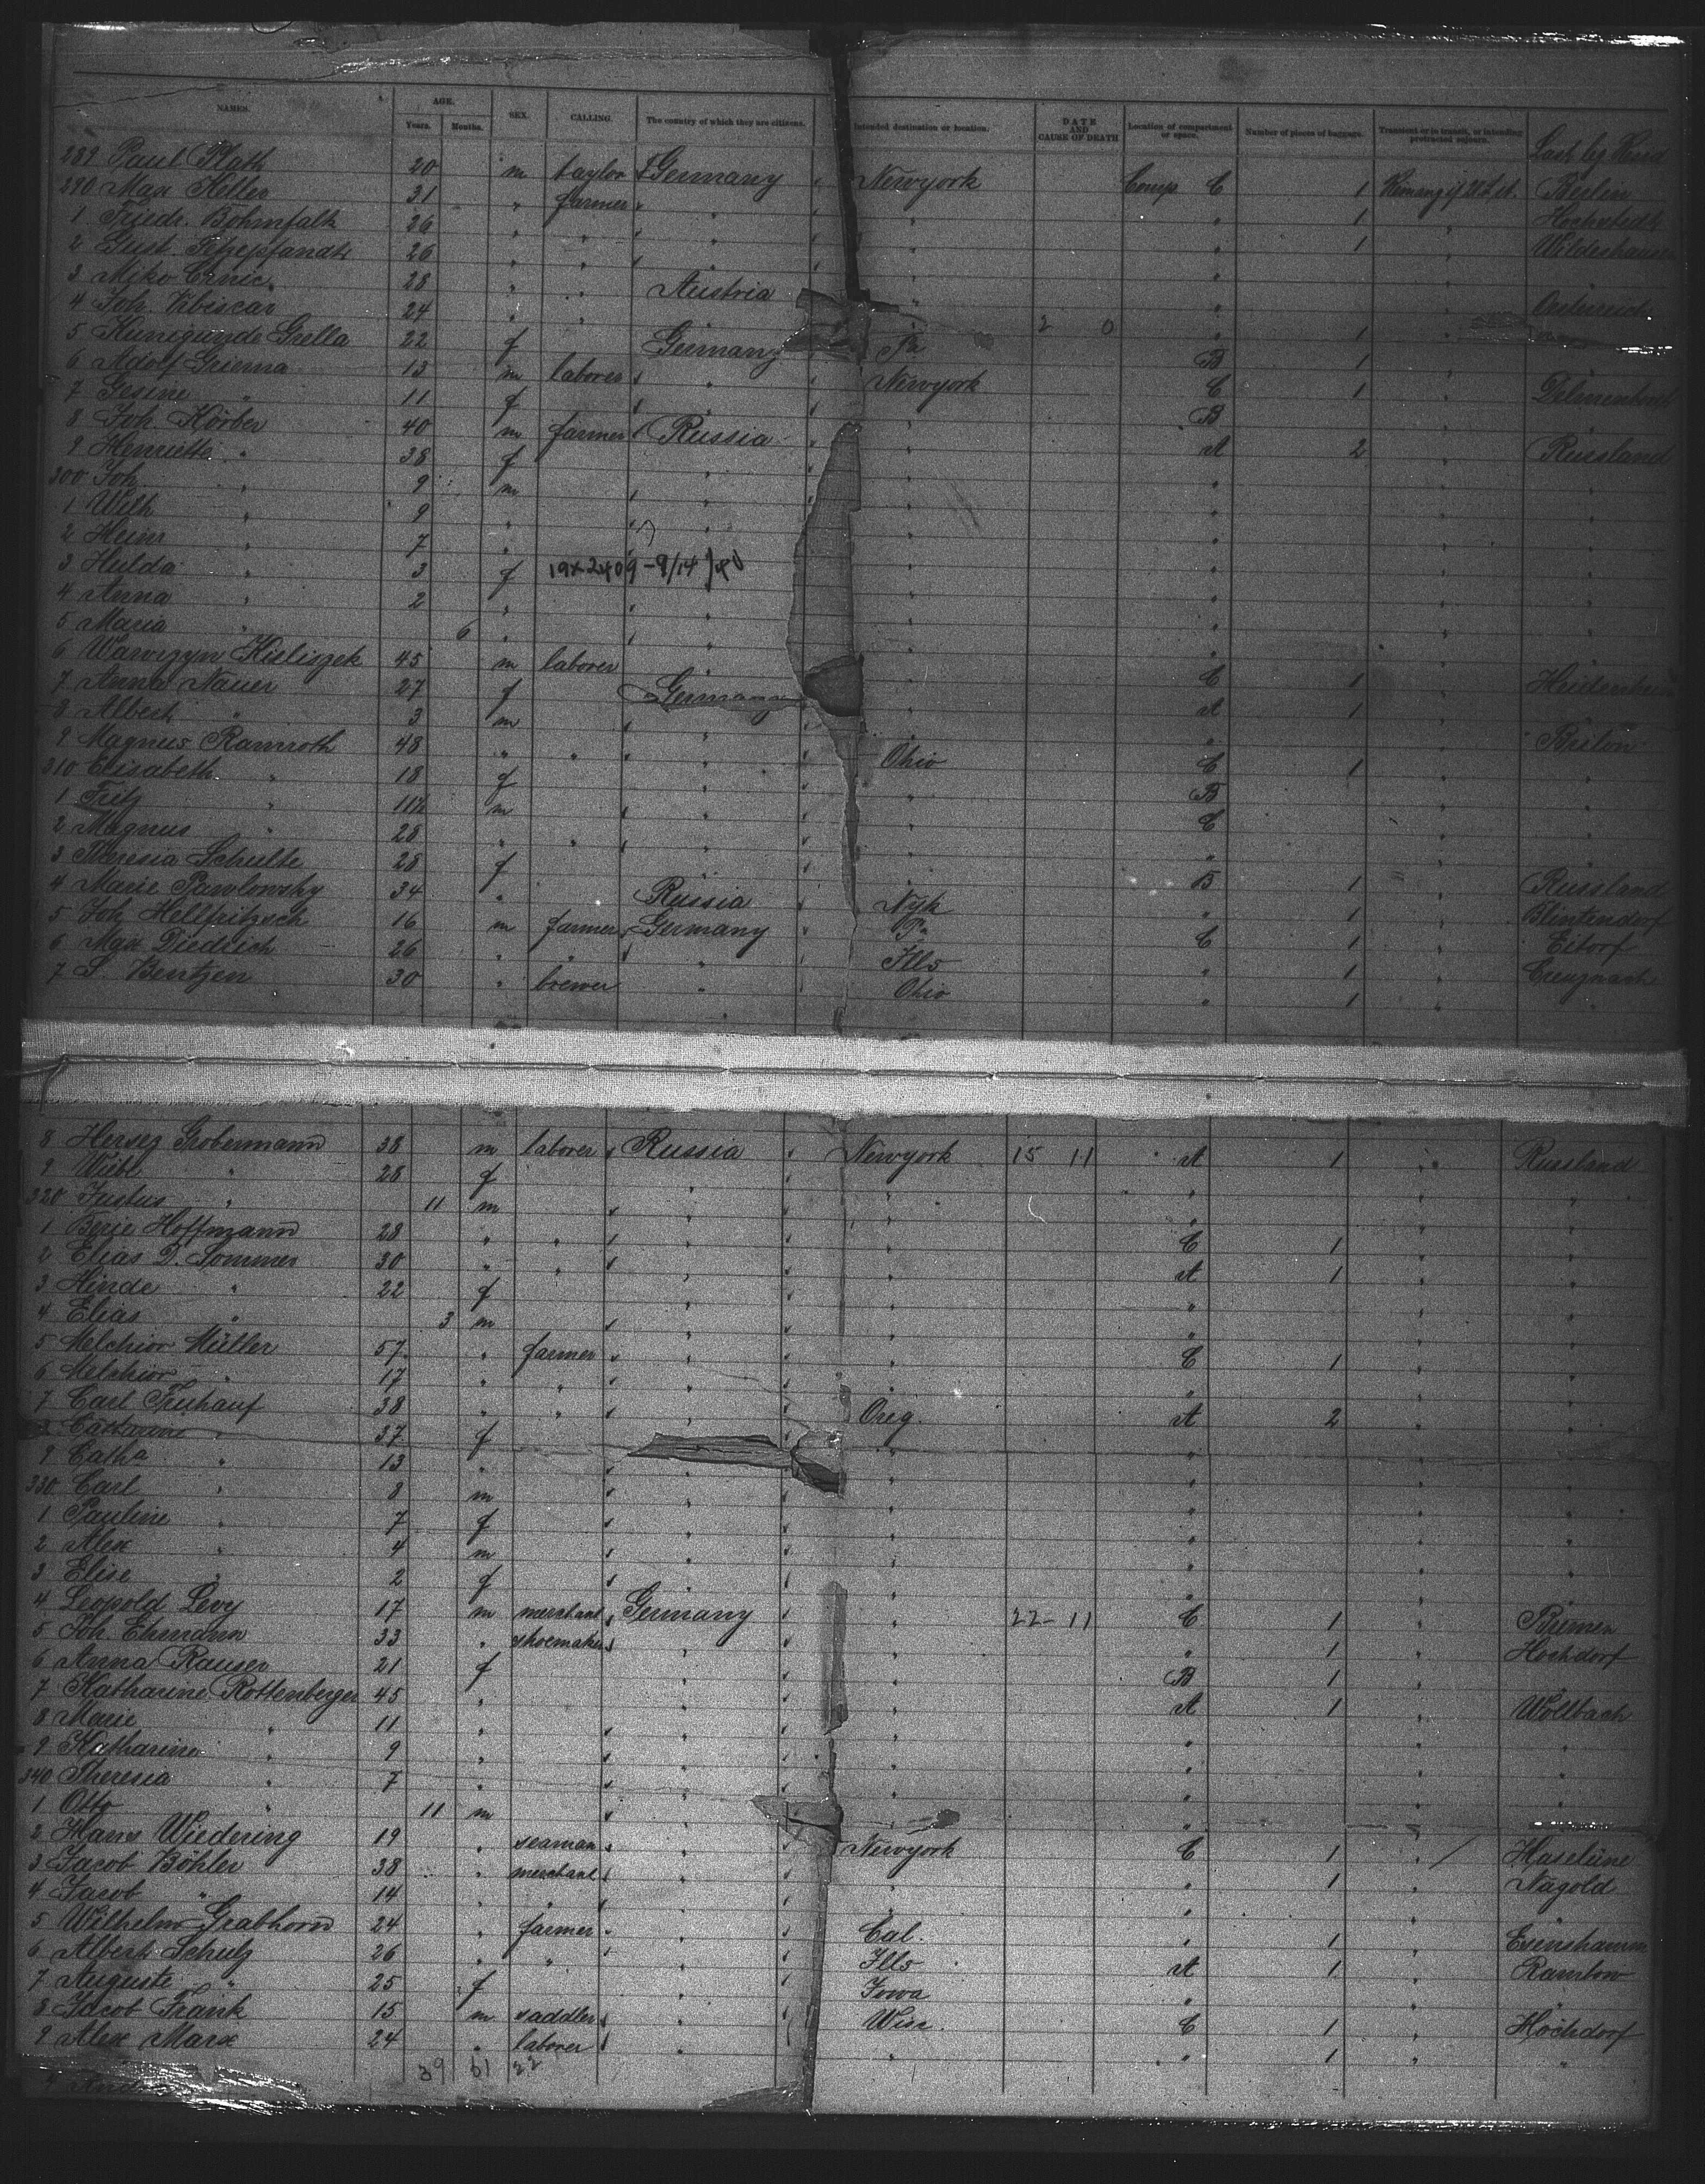 NAMES. AGE. Years. Months. SEX. CALLING. The country of which they are citizens. Intended destination or location. DATE AND CAUSE OF DEATH Location of compartment or space. Number of pieces of baggage. Transient or in transit, or intending protracted sojourn.
289 Paul Plath 20 m taylor Germany Newyork Comp. C 1 Berlin
290 Max Keller 31 " farmer " " " 1 "
1 Friedr. Bohmfalk 26 " " " " " 1 " Wildeshausen
2 Gust. 26 " " " " "
3 Miko Crnic 28 " " Austria " "
4 Joh. 24 " " " " 1
5 Kunigunde Grella 22 f Germany Pa B 1
6 Adolf Grienna 13 m laborer " Newyork C 1 " Delmenhorst
7 Gesine " 11 f " " B
8 Joh. Körber 40 m farmer Russia " A 2 " Russland
9 Henriette " 38 f " " " " "
300 Joh. " 9 m " " " " "
1 Wilh " 9 " " " " " "
2 Heinr " 7 " " " " " "
3 Hulda " 3 f 19x2409-9/14/40 " " " "
4 Anna " 2 " " " " " "
5 Maria " 6 " " " " " "
6 Wawrzyn Kieliszek 45 m laborer " C 1 "
7 Anna Nauer 27 f Germany " A 1 "
8 Albert " 3 m " " " "
9 Magnus Ramroth 48 " " " Ohio C 1 " Brilon
310 Elisabeth " 18 f " " B " "
1 Fritz " 11½ m " " C " "
2 Magnus " 28 " " " " " " "
3 Theresia Schulte 28 f " " B 1 "
4 Marie Pawlowsky 34 " Russia NYk " 1 " Russland
5 Joh Hellfritzsch 16 m farmer Germany Pa C 1 " Blintendorf
6 Max Diedrich 26 " " " Ills " 1 " Eitorf
7 S. Bentzen 30 " brewer " Ohio " 1 " Creuznach
8 Hersez Grobermann 38 m laborer Russia Newyork 15 11 A 1 " Russland
9 Wiebe " 28 f " " " " "
320 Justus " 11 m " " " " "
1 Berie Hoffmann 28 " " " " C 1 " "
2 Elias D. Sommer 30 " " " " A 1 " "
3 Hinde " 22 f " " " " "
4 Elias " 3 m " " " " "
5 Melchior Müller 57 " farmer " " C 1 " "
6 Melchior " 17 " " " " " " "
7 Carl Fruhauf 38 " " " Oreg. A 2 " "
8 Catharine " 37 f " " " "
9 Catha " 13 " " " " " "
330 Carl " 8 m " " " " "
1 Pauline " 7 f " " " " "
2 Alex " 4 m " " " " "
3 Elise " 2 f " " " " "
4 Leopold Levy 17 m merchant Germany " 22-11 C 1 " Bremen
5 Joh. Ehmann 33 " shoemaker " " " 1 " Hochdorf
6 Anna Rauser 21 f " " B 1 " "
7 Katharine Rottenberger 45 " " " A 1 " Wollbach
8 Marie " 11 " " " " " "
9 Katharine " 9 " " " " " "
340 Theresia " 7 " " " " " "
1 Otto " 11 m " " " "
2 Hans Wiedering 19 " seaman " Newyork C 1 " Haselüne
3 Jacob Böhler 38 " merchant " " " 1 " Nagold
4 Jacob " 14 " " " " " " "
5 Wilhelm Grabhorn 24 " farmer " Cal. " 1 " Esenshamm
6 Albert Schulz 26 " " " Ills A 1 " Ramlow
7 Auguste " 25 f " Iowa " " "
8 Jacob Frank 15 m saddler " Wisc. C 1 " Hochdorf
9 Alex Marx 24 " laborer " " " 1 " "
39 61 22